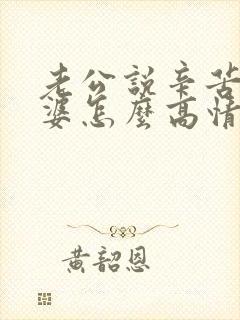 老公說辛苦
婆怎麼高情
黃韶恩